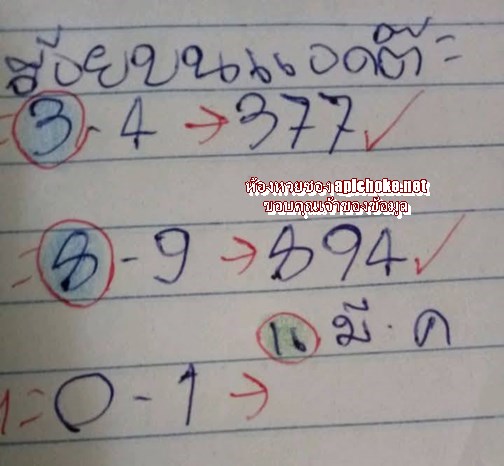 ร้อยบนแอดติ๊ะ
= 3 - 4 → 377 ✓
ห้องหวยซอง apichoke.net
ขอบคุณเจ้าของข้อมูล
= 8 - 9 → 894 ✓
16 มี. ค
= 0 - 1 →